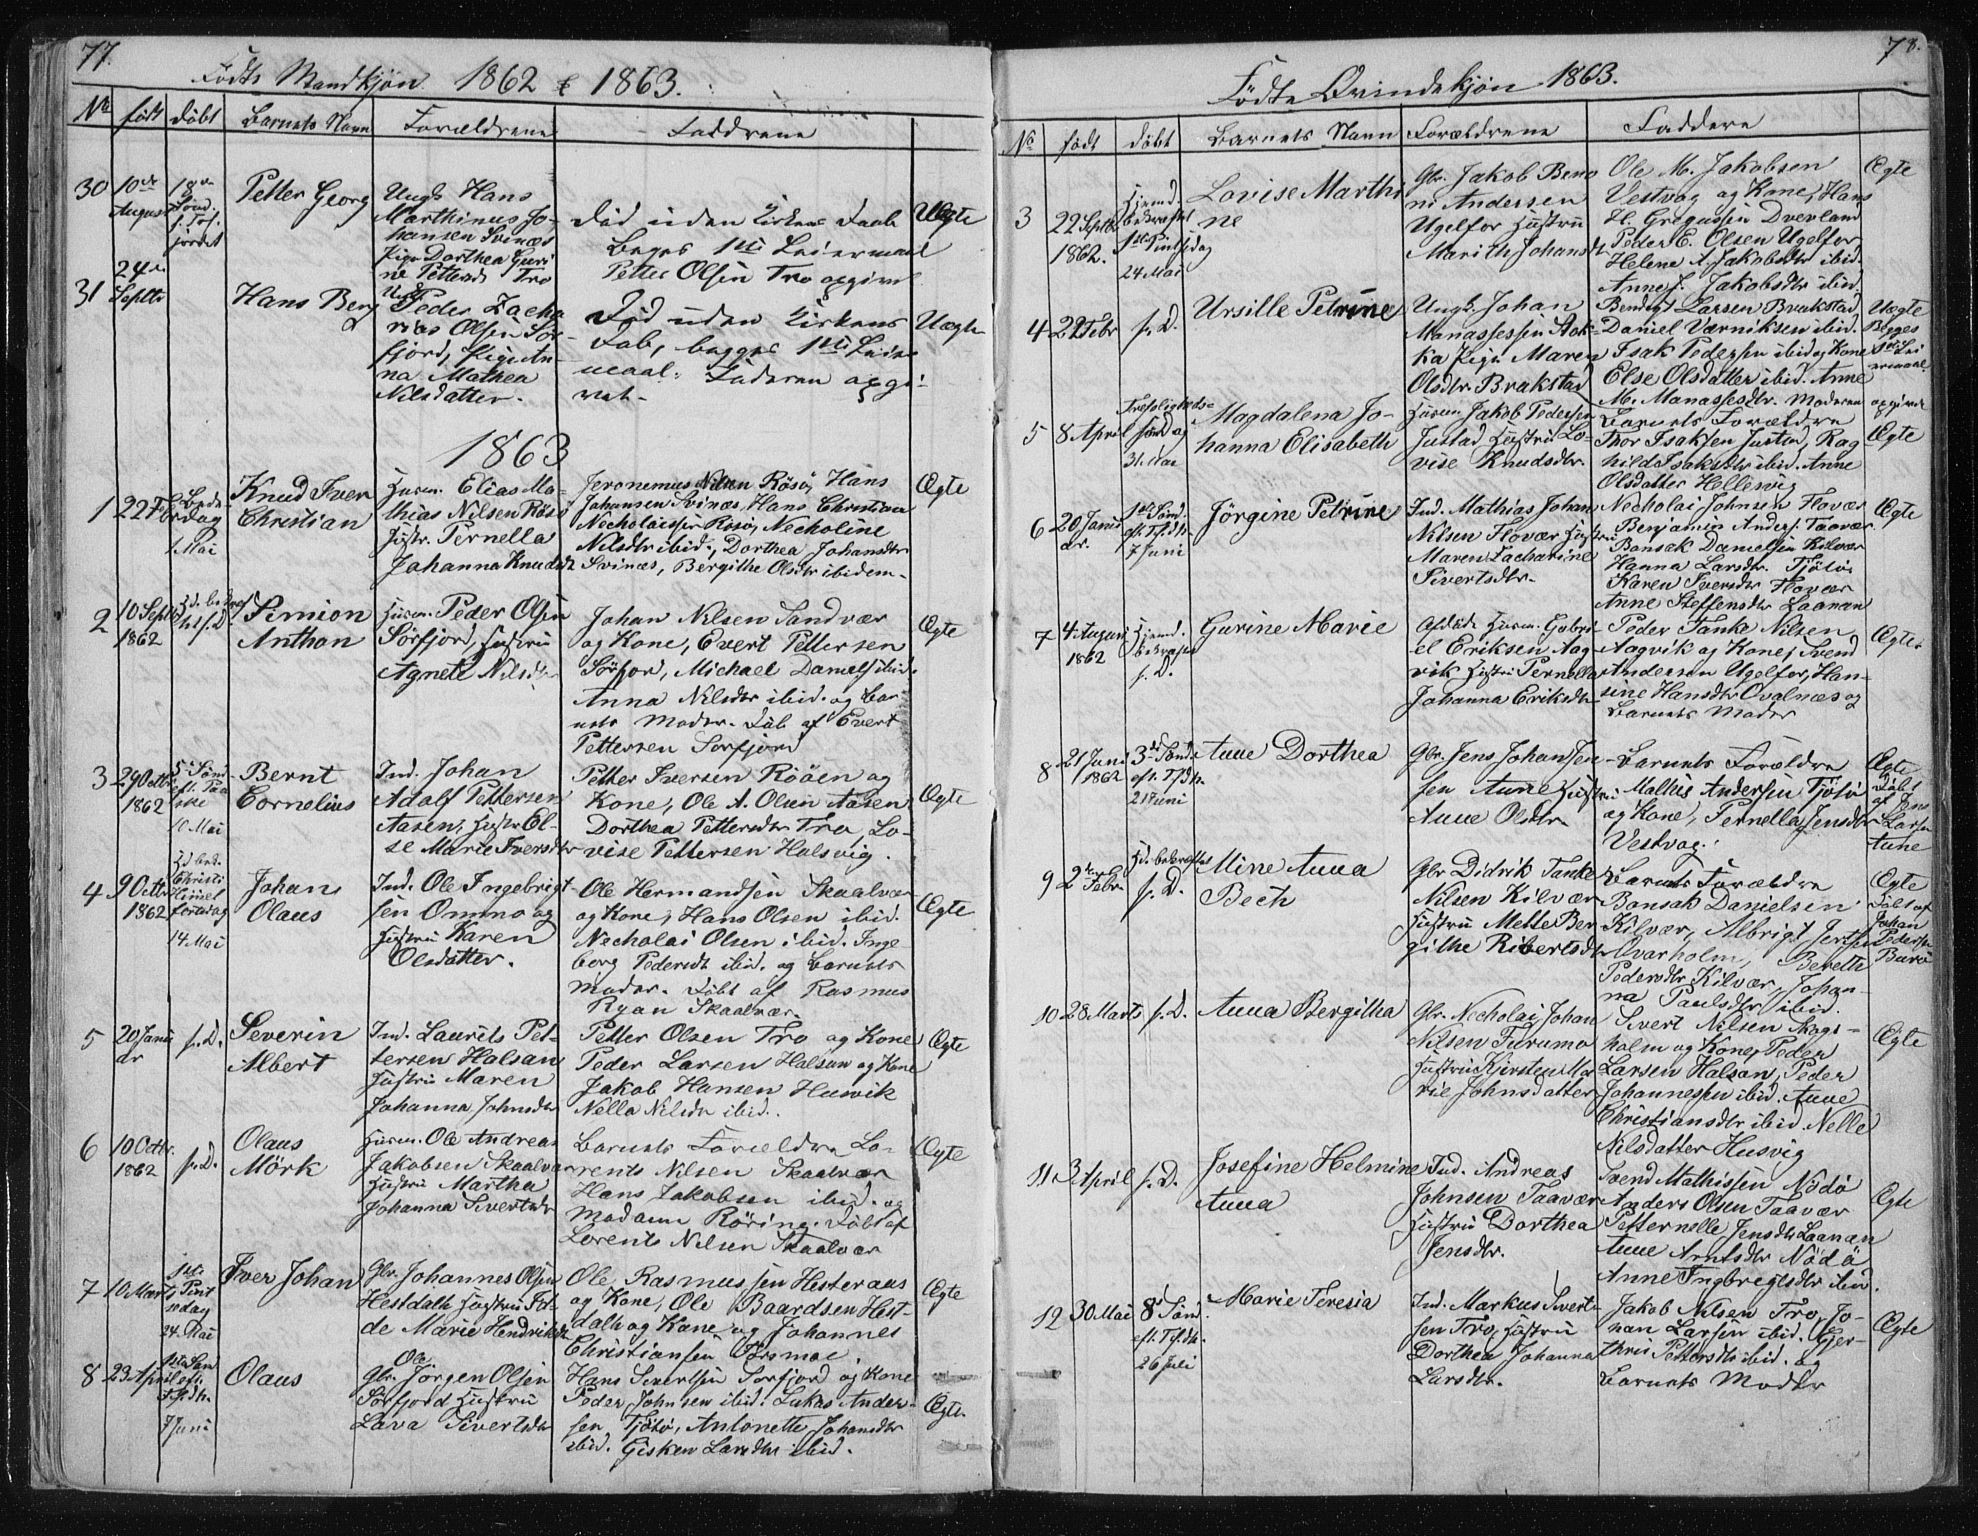 77.
Födte Mandkjøn 1862 & 1863.
No født døbt Barnets Navn Forældrene Faddrene
30 10de August 18de Sönd. f. Tref. Petter Georg
Ungk. Hans
Marthinus Jo-
hansen Svinæs
Pige Dorthea Guri-
ne Pettersd. Tro
Død uden Kirkens Daab
Begges 1ste Leiermaal
Petter Olsen Tro opgivet
Uægte
31 24de Septbr Hans Berg
Ungk.
Peder Zacha-
rias Olsen Sör-
fjord, Pige An-
na Mathea
Nilsdatter.
Död uden Kirkens
Dab, begges 1ste Leier
maal. Faderen opgi-
vet.
Uægte
1863
1 22 Febr Bededag 1 Mai
Knud Iver
Christian
Huusm. Elias Ma-
thias Nilsen Rösö
Hustr. Pernella
Johanna Knudsdtr
Jeronemus Nilsen Rösö, Hans
Johansen Svinæs, Hans Christian
Necholaisen Rosö, Necholine
Nilsdtr ibid., Dorthea Johansdtr
Svinæs, Bergithe Olsdtr ibidem.
Ægte
2 10 Septbr 1862 s. D.
Simion
Anthon
Huusm. Peder Olsen
Sörfjord, Hustru
Agnete Nilsdtr
Johan Nilsen Sandvær
og Kone, Evert Pettersen
Sörfjord, Michael Daniels ibid.
Anna Nilsdtr ibid. og Bar-
nets Moder. Döb af Evert
Pettersen Sorfjord
Ægte
3 29 Octbr 1862 5te Sönd. eft. Paaske 10 Mai
Bernt
Cornelius
Ind. Johan
Adolf Pettersen
Aasen, Hustr. El-
se Marie Iversdtr
Petter Iversen Röðen og
Kone, Ole A. Olsen Aasen
Dorthea Pettersdtr Tro, Lo-
vise Pettersen Halsvig.
Ægte
4 9 Octbr 1862 Hd. bek. Christi Himmelfartsdag 14 Mai
Johans
Olaus
Ind. Ole Ingebrigt-
sen Omno og
Hustru Karen
Olsdatter.
Ole Hermandsen Skaalvær
og Kone, Hans Olsen ibid.
Necholai Olsen ibid. Inge
borg Pedersdt ibid. og Barnets
Moder. Döbt af Rasmus
Ryan Skaalvær.
Ægte
5 20 Janu ar s. D.
Severin
Albert
Ind. Laurits Pet-
tersen Halsan
Hustru Maren
Johanna Johnsdtr
Petter Olsen Tro og Kone
Peder Larsen Halsan og Kone
Jakob Hansen Husvik
Nella Nilsdtr ibid.
Ægte
6 10 Octbr. 1862 s. D.
Olaus
Mörk
Huusm. Ole Andreas
Jakobsen Skaalvær
Hustru Martha
Johanna Sivertsdtr
Barnets Forældre Lo-
rents Nilsen Skaalvær
Hans Jakobsen ibid. og
Madam Röring. Döbt af
Lorents Nilsen Skaalvær
Ægte
7 10 Marts 1ste Pintsedag 24. Mai
Iver Johan
Gbr. Johannes Olsen
Hestdalh Hustru
de Marie Hendriksdt
Ole Rasmussen Hesteraas
og Kone, Ole Baardsen Hest-
dalh og Kone og Johannes
Christiansen Forsmoe
Ægte
8 23 April 1ste Sönd. eft. Tfsdh. 7 Juni
Olaus
Ole
Gbr. Jörgen Olsen
Sörfjord Hustru
Lava Sivertsdtr
Hans Sivertsen Sorfjord og Kone
Peder Johnsen ibid. Lukas Ander-
sen Tjötö, Antonette Johansdtr
ibid. Gisken Larsdtr ibid.
Ægte.
78.
Födte Qvindekjön 1863.
No født døbt Barnets Navn Forældrene Faddere
3 22 Septbr 1862. Hjemd. bekræftet 1ste Pintsdag 24 Mai
Lovise Marthi
ne
Gbr. Jakob Beno
ni Andersen
Ugelfor Hustru
Marith Johansdtr
Ole M. Jakobsen
Vestvog og Kone, Hans
H. Gregussen Dverland
Peder E. Olsen Ugelfor
Helene A. Jakobsdtr ibid.
Anne J. Jakobsdtr ibid.
Ægte
4 22 Febr s. D.
Ursille Petrine
Ungk. Johan
Manassessen Aak-
Pige Maren
Olsdtr. Brakstad
Bendigt Larsen Brakstad,
Daniel Værniksen ibid.
Isak Pedersen ibid og Kone
Else Olsdatter ibid. Anne
M. Manassesdtr. Moderen
Uægte
Begges
1ste Lei
ermaal.
opgivet
5 8 April Trefoligheds- sönd ag 31. Mai
Magdalena Jo-
hanna Elisabeth
Huusm. Jakob Pedersen
Justad Hustru Lo-
vise Knudsdtr.
Barnets Forældre
Thor Isaksen Justad, Rag
hild Isaksdtr ibid. Anne
Olsdatter Hellesvig
Ægte
6 20 Janu ar. 1ste Sönd. eft. Tfsdh. 7 Juni
Jörgine Petrine
Ind. Mathias Johan
Nilsen Flovær Hustru
Maren Zacharine
Sivertsdtr.
Necholai Johnsen Flovær
Benjamin Anders. Taavær
Bonsak Danielsen Kilvær
Hanna Larsdtr. Tjötö
Karen Iversdtr Flovær
Anne Steffensdtr Laanan
Ægte
7 4 August 1862 Hjemd. bekræftet s. D.
Gurine Marie
Afdöde Huusm. Gabri-
el Eriksen Aag-
vik Hustru Pernella
Johanna Eriksdtr
Peder Tanke Nilsen
Aagvik og Kone, Svend
Andersen Ugelfor, Han-
sine Hansdtr Qvalnæs og
Barnets Moder
Ægte
8 21 Juni 1862 3de Sönd. eft. Tfsdh. 21 Juni
Anne Dorthea
Gbr. Jens Johan Jen-
sen Aune Hustru
Anne Olsdtr.
Barnets Forældre
Mathis Andersen Tjötö
og Kone, Pernella Jensdtr
Vestvog.
Ægte
Döbt
af Jens
Larsen
Aune
9 2den Febr. Hd. bekræftet s. D.
Mine Anna
Bech
Gbr Didrik Tanke
Nilsen Kilvær
Hustru Mette Ber
githe Ribertsdtr
Barnets Forældre
Bonsak Danielsen
Kilvær, Albrigt Jertsen
Qvarholm, Berette
Pedersdtr Kilvær, Johan-
na Paulsdtr ibid.
Ægte
Döbt af
Johan
Pedersen
Burö
10 28 Marts s. D.
Anna Bergitha
Gbr. Necholai Johan
Nilsen Furumo
Hustru Kjersten Ma
rie Johnsdatter
Sivert Nilsen Skogs-
holm og Kone, Peder
Larsen Halsan, Peder
Johannessen ibid. Anne
Christiansdtr ibid. Nelle
Nilsdatter Husvig
Ægte
11 3 April s. D.
Josefine Helmine
Anna
Ind. Andreas
Johnsen Taavær
Hustru Dorthea
Jensdtr.
Svend Mathissen Nödö
Anders Olsen Taavær
Petternelle Jensdtr Laanan
Anne Arntsdtr Nödö
Anne Ingbregtsdtr ibid.
Ægte
12 30 Mai 8de Sönd. eft. Tfsdh. 26 Juli
Marie Teresia
Ind. Markus Sivert-
sen Tro, Hustru
Dorthea Johanna
Larsdtr.
Jakob Nilsen Tro, Jo-
han Larsen ibid. Gjer-
thru Pettersdtr ibid. og
Barnets Moder
Ægte